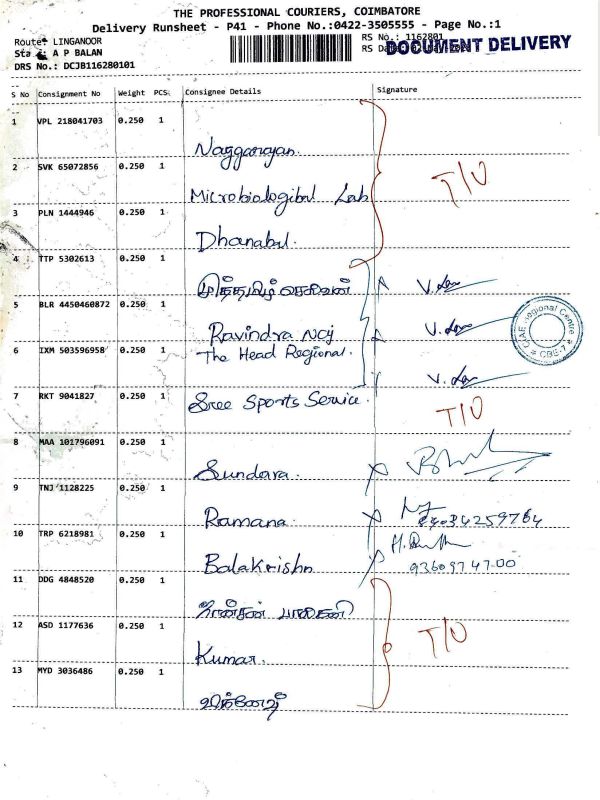 THE PROFESSIONAL COURIERS, COIMBATORE
Delivery Runsheet - P41 - Phone No.:0422-3505555 - Page No.:1
Route: LINGANOOR
RS No.: 1162801
A P BALAN
RS
DOCUMENT DELIVERY
DRS No.: DCJB116280101
S No Consignment No Weight PCS. Consignee Details Signature
1 VPL 218041703 0.250 1
Nagganayan.
2 SVK 65072856 0.250 1
Microbiologibal Lab
T/U
3 PLN 1444946 0.250 1
Dhanabal.
4 TTP 5302613 0.250 1
5 BLR 4450460872 0.250 1
Ravindra Naj
6 IXM 503596958 0.250 1
The Head Regional.
Regional Centre
CBE-7
7 RKT 9041827 0.250 1
Sree Sports Service.
T/U
8 MAA 101796091 0.250 1
Sundara.
9 TNJ 1128225 0.250 1
Ramana.
10 TRP 6218981 0.250 1
Balakrishn
9360974700
11 DDG 4848520 0.250 1
12 ASD 1177636 0.250 1
Kumar.
T/U
13 MYD 3036486 0.250 1